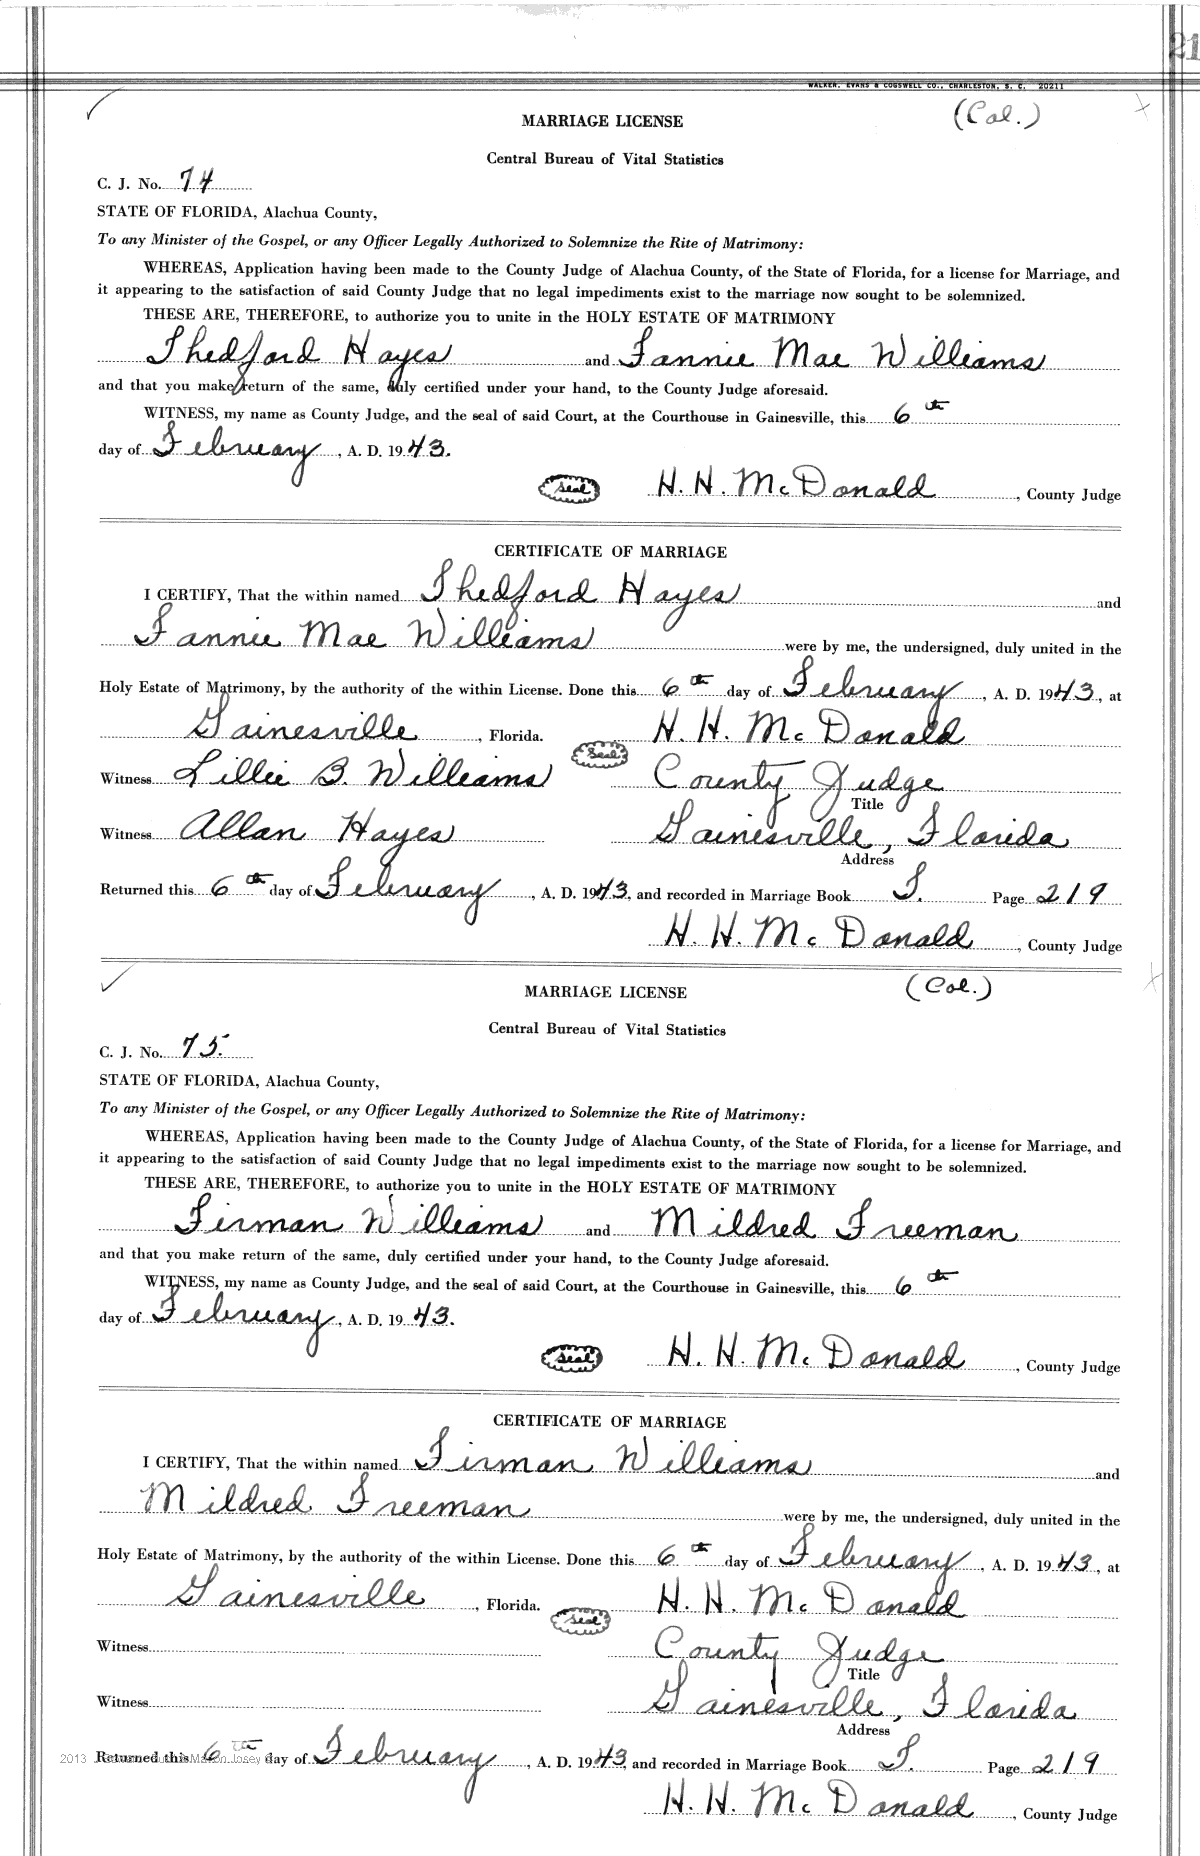 21
WALKER, EVANS & COGSWELL CO., CHARLESTON, S. C. 20211
(Col.)
MARRIAGE LICENSE
Central Bureau of Vital Statistics
C. J. No. 74
STATE OF FLORIDA, Alachua County,
To any Minister of the Gospel, or any Officer Legally Authorized to Solemnize the Rite of Matrimony:
WHEREAS, Application having been made to the County Judge of Alachua County, of the State of Florida, for a license for Marriage, and
it appearing to the satisfaction of said County Judge that no legal impediments exist to the marriage now sought to be solemnized.
THESE ARE, THEREFORE, to authorize you to unite in the HOLY ESTATE OF MATRIMONY
Thedford Hayes and Fannie Mae Williams
and that you make return of the same, duly certified under your hand, to the County Judge aforesaid.
WITNESS, my name as County Judge, and the seal of said Court, at the Courthouse in Gainesville, this 6th
day of February, A. D. 1943.
Seal H. H. McDonald, County Judge
CERTIFICATE OF MARRIAGE
I CERTIFY, That the within named Thedford Hayes and
Fannie Mae Williams were by me, the undersigned, duly united in the
Holy Estate of Matrimony, by the authority of the within License. Done this 6th day of February, A. D. 1943, at
Gainesville, Florida. Seal H. H. McDonald
Witness Lillie B. Williams County Judge
Title
Witness Allan Hayes Gainesville, Florida
Address
Returned this 6th day of February, A. D. 1943, and recorded in Marriage Book Page 219
H. H. McDonald, County Judge
(Col.)
MARRIAGE LICENSE
Central Bureau of Vital Statistics
C. J. No. 75.
STATE OF FLORIDA, Alachua County,
To any Minister of the Gospel, or any Officer Legally Authorized to Solemnize the Rite of Matrimony:
WHEREAS, Application having been made to the County Judge of Alachua County, of the State of Florida, for a license for Marriage, and
it appearing to the satisfaction of said County Judge that no legal impediments exist to the marriage now sought to be solemnized.
THESE ARE, THEREFORE, to authorize you to unite in the HOLY ESTATE OF MATRIMONY
Firman Williams and Mildred Freeman
and that you make return of the same, duly certified under your hand, to the County Judge aforesaid.
WITNESS, my name as County Judge, and the seal of said Court, at the Courthouse in Gainesville, this 6th
day of February, A. D. 1943.
Seal H. H. McDonald, County Judge
CERTIFICATE OF MARRIAGE
I CERTIFY, That the within named Firman Williams and
Mildred Freeman were by me, the undersigned, duly united in the
Holy Estate of Matrimony, by the authority of the within License. Done this 6th day of February, A. D. 1943, at
Gainesville, Florida. Seal H. H. McDonald
Witness County Judge
Title
Witness Gainesville, Florida
Address
2013 Returned this 6th day of February, A. D. 1943, and recorded in Marriage Book Page 219
H. H. McDonald, County Judge